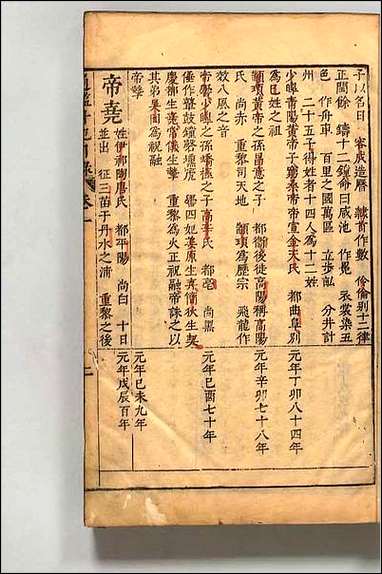 子以名日　容成造曆　隸首作數　伶倫別十二律
正閏餘　鑄十二鐘命曰咸池　作冕　衣裳染五
色　作舟車　百里之國萬區　立步畝　分井計
州　二十五子得姓者十四人為十二姓
少皥青陽黃帝子 帝宣金天氏　都曲阜別 元年丁卯八十四年
為巳姓之祖
顓頊黃帝之孫昌意之子　都衞後徙高陽稱高陽 元年辛卯七十八年
氏　尚赤　重黎司天地　顓頊為曆宗　飛龍作
效八風之音
帝嚳少皥之孫蟜極之子高辛氏　都亳　尚黑 元年己酉七十年
倕作鼙鼓鐘磬壎箎　帝四妃姜原生棄簡狄生契
慶都生堯常儀生摯　重黎為火正祝融帝誅之以
其弟吳囘為祝融
帝摯 元年己未九年
帝堯 姓伊祁陶唐氏　都平陽　尚白　十日 元年戊辰百年
並出　征三苗于丹水之浦　重黎之後
卷一